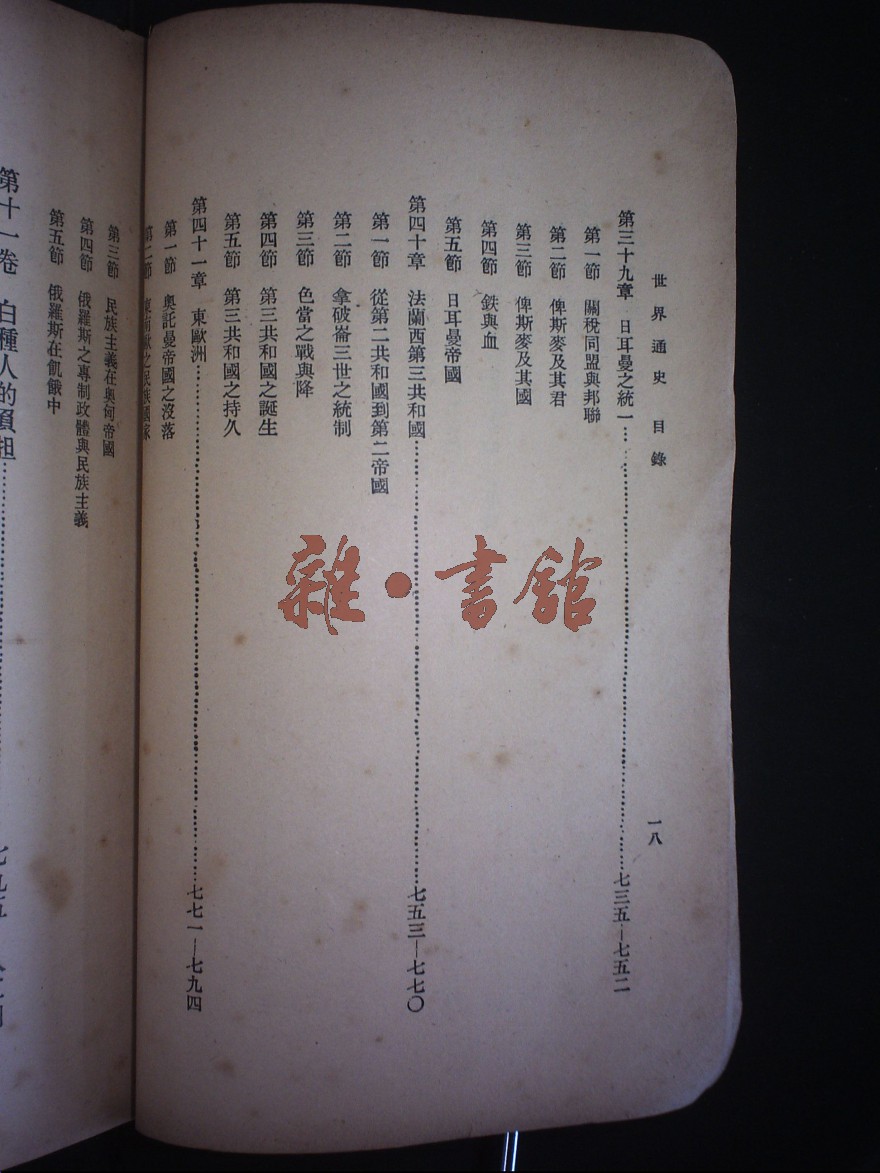 世界通史 目錄 一八
第三十九章 日耳曼之統一……七三五—七五二
第一節 關稅同盟與邦聯
第二節 俾斯麥及其君
第三節 俾斯麥及其國
第四節 鉄與血
第五節 日耳曼帝國
第四十章 法蘭西第三共和國……七五三—七七〇
第一節 從第二共和國到第二帝國
第二節 拿破崙三世之統制
第三節 色當之戰與降
第四節 第三共和國之誕生
第五節 第三共和國之持久
第四十一章 東歐洲……七七一—七九四
第一節 奧託曼帝國之沒落
第二節 東南歐之民族國家
第三節 民族主義在奧匈帝國
第四節 俄羅斯之專制政體與民族主義
第五節 俄羅斯在飢餓中
第十一卷 白種人的負担……七九五
雜·書館